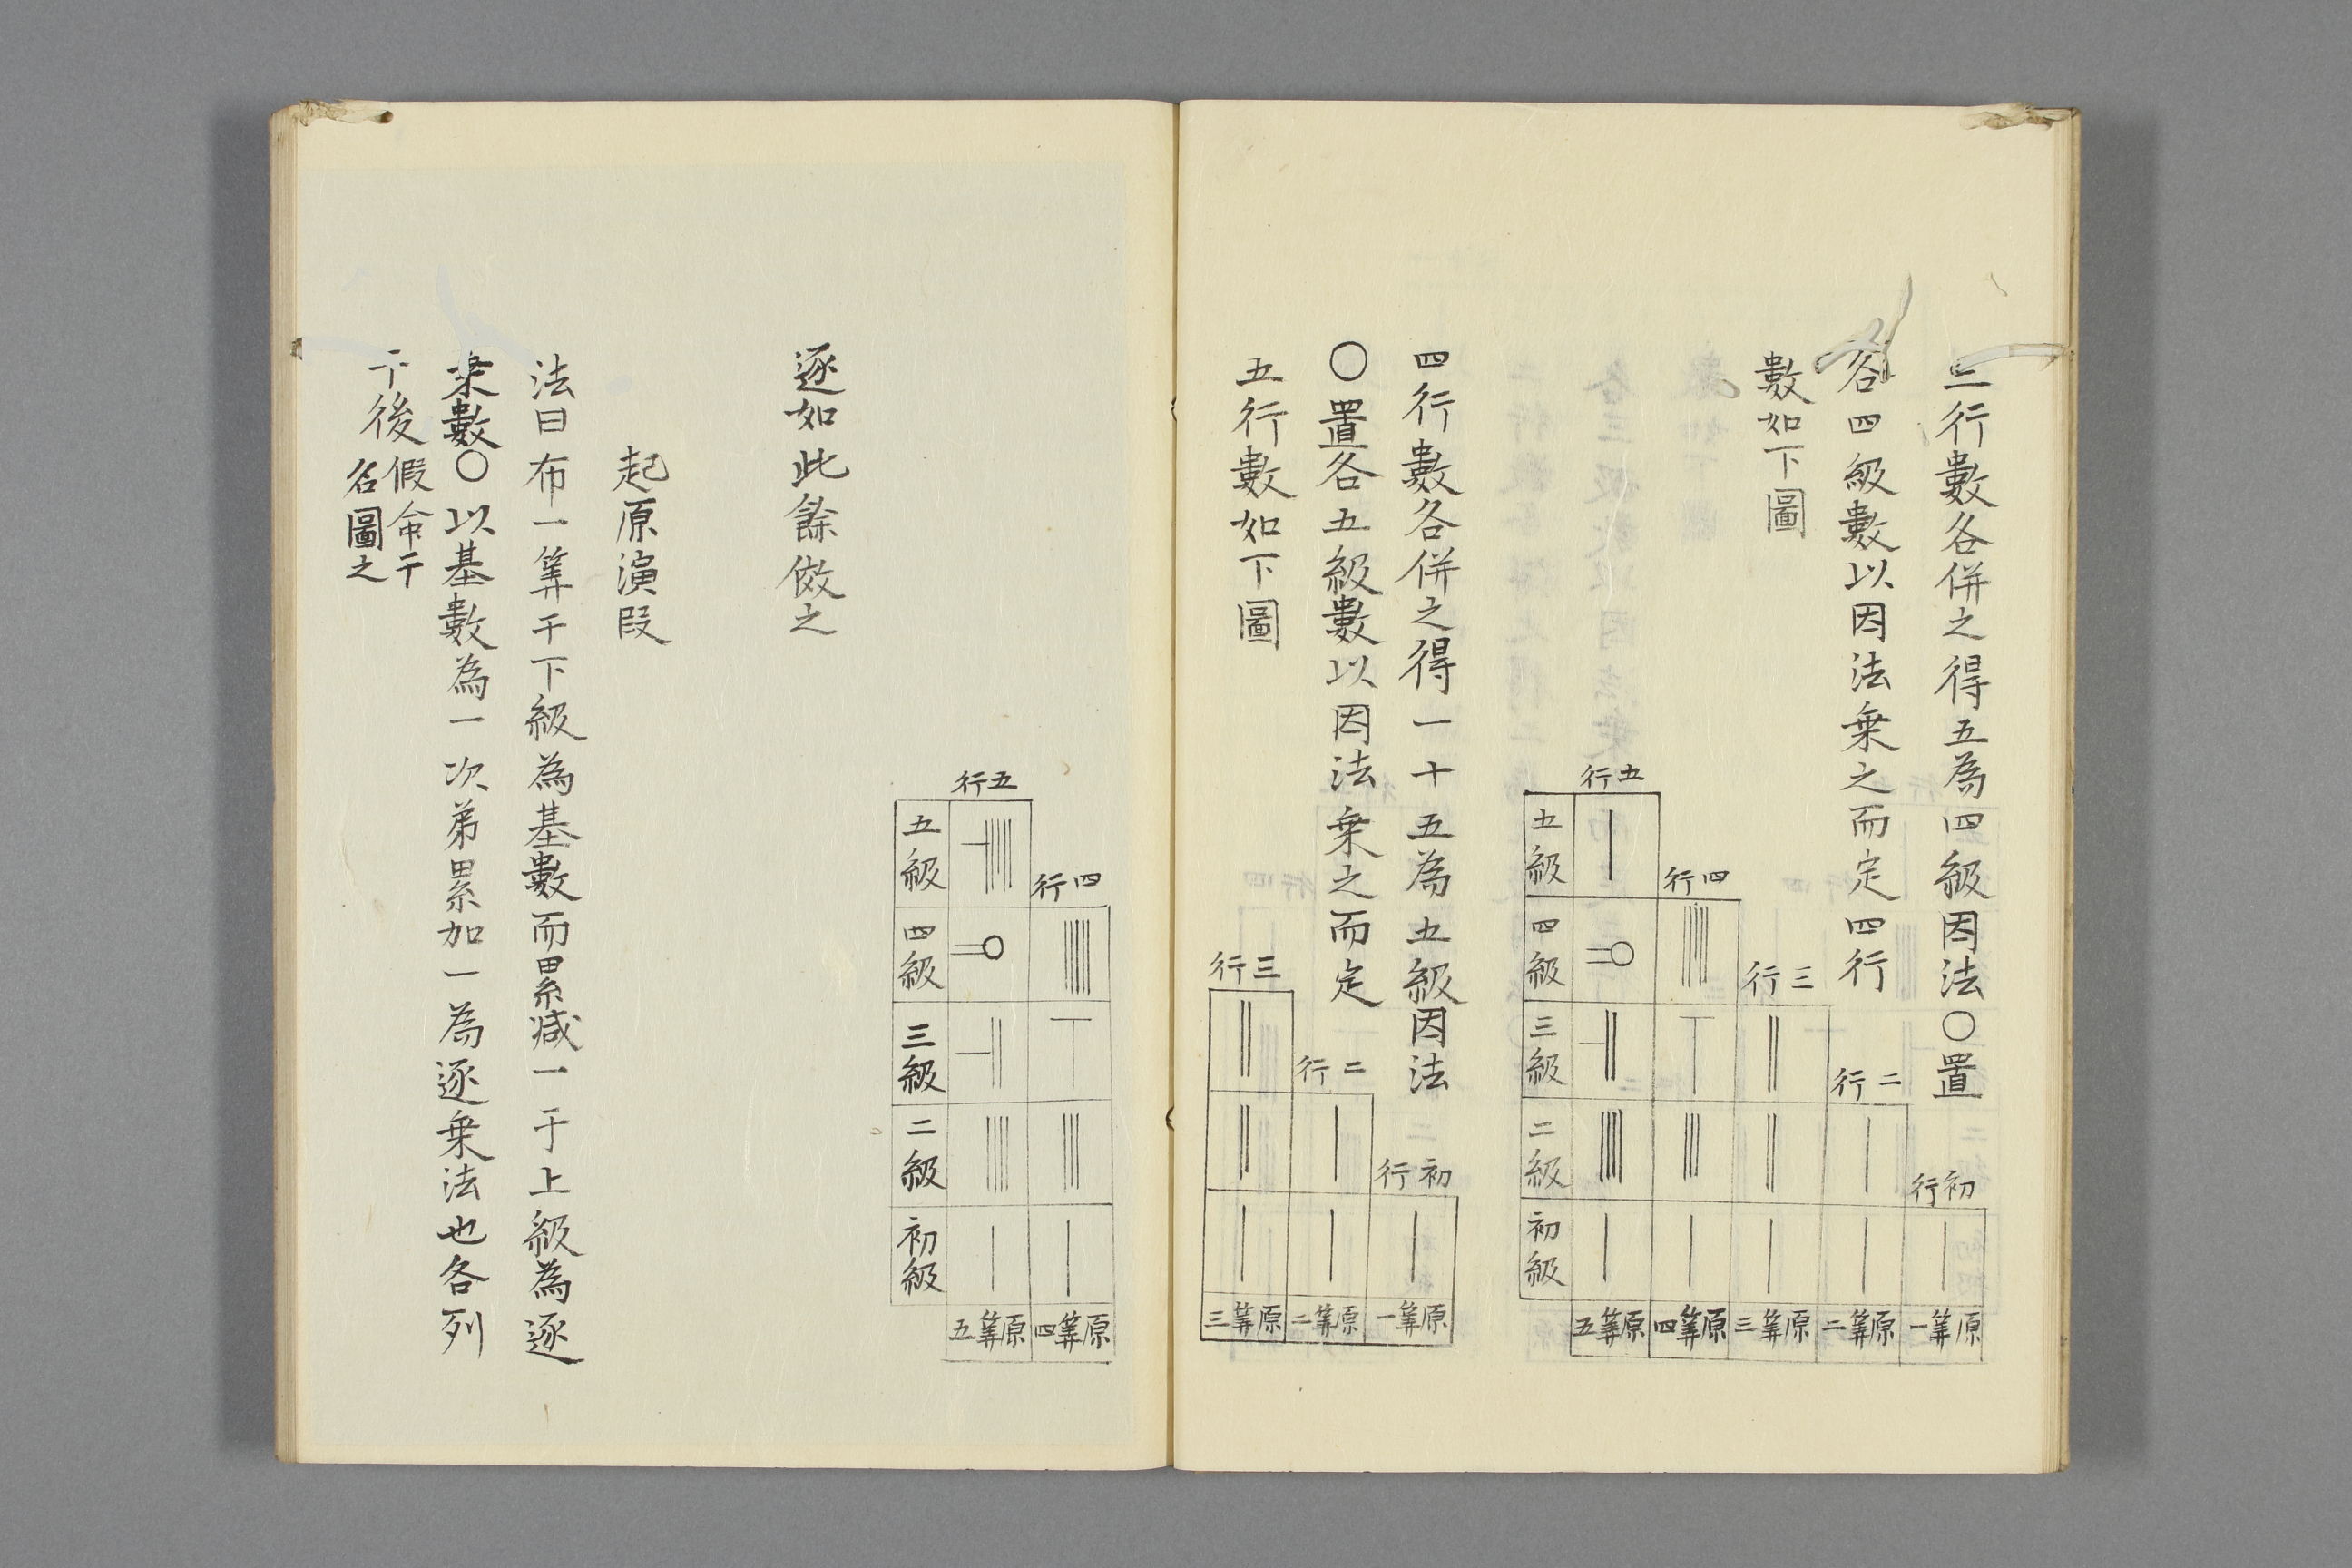 二行數各併之得五為四級因法〇置
各四級數以因法乗之而定四行
數如下圖
初行
二行
三行
四行
五行
五級
四級
三級
二級
初級
原筭一
原筭二
原筭三
原筭四
原筭五
四行數各併之得一十五為五級因法
〇置各五級數以因法乗之而定
五行數如下圖
初行
二行
三行
原筭一
原筭二
原筭三
四行
五行
五級
四級
三級
二級
初級
原筭四
原筭五
逐如此餘倣之
起原演段
法曰布一筭于下級為基數而累減一于上級為逐
乗數〇以基數為一次第累加一為逐乗法也各列
于後假命干
名圖之